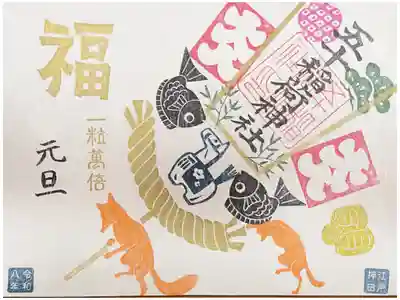 福
一粒萬倍
元旦
五十
稲荷神社
江戸
神田
令和
八年